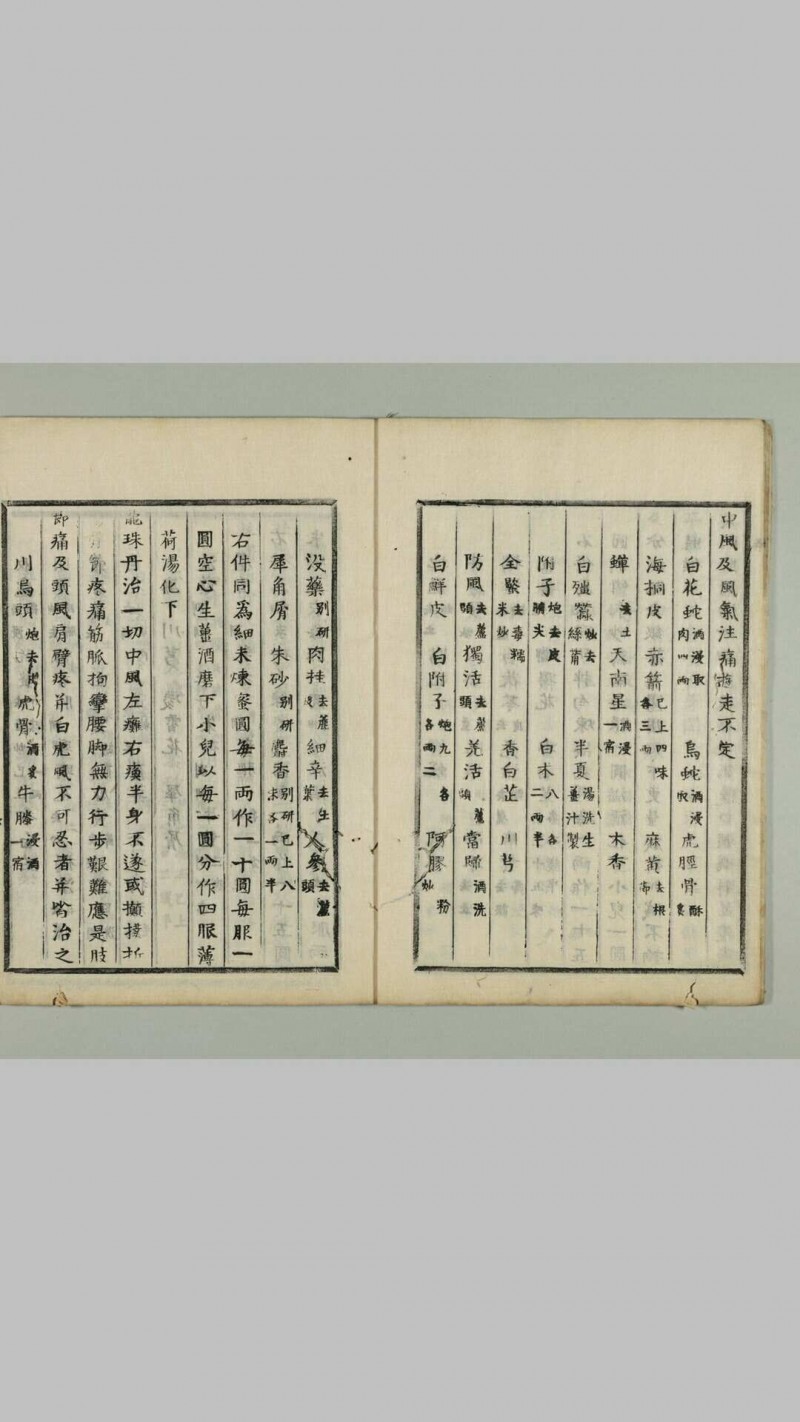 中風及風氣注痛遊走不定
白花蛇酒浸取肉四兩 烏蛇酒浸取 虎脛骨酥炙
海桐皮 赤箭已上四味各三兩 麻黄去根
蟬去土 天南星酒浸一宿 木香
白殭蠶炒去絲 半夏湯洗生薑汁製
附子炮去皮臍尖 白术八各二兩半
全蝎去毒糯米炒 香白芷 川芎
防風去蘆頭 獨活去蘆頭 羌活去蘆頭 當歸酒洗
白鮮皮 白附子炮九各二兩 阿膠粉炒
没藥别研 肉桂去麄皮 細辛去生葉 人參去蘆頭
犀角屑 朱砂别研 麝香别研已上八味各一兩半
右件同為細末煉蜜圓每一兩作一十圓每服一
圓空心生薑酒磨下小兒以每一圓分作四服薄
荷湯化下
龍珠丹治一切中風左癱右瘓半身不遂或攧撲折
疼痛筋脈拘攣腰脚無力行步艱難應是肢
節痛及頭風肩臂疼并白虎風不可忍者并皆治之
川烏頭炮去 虎骨酒炙 牛膝酒浸一宿